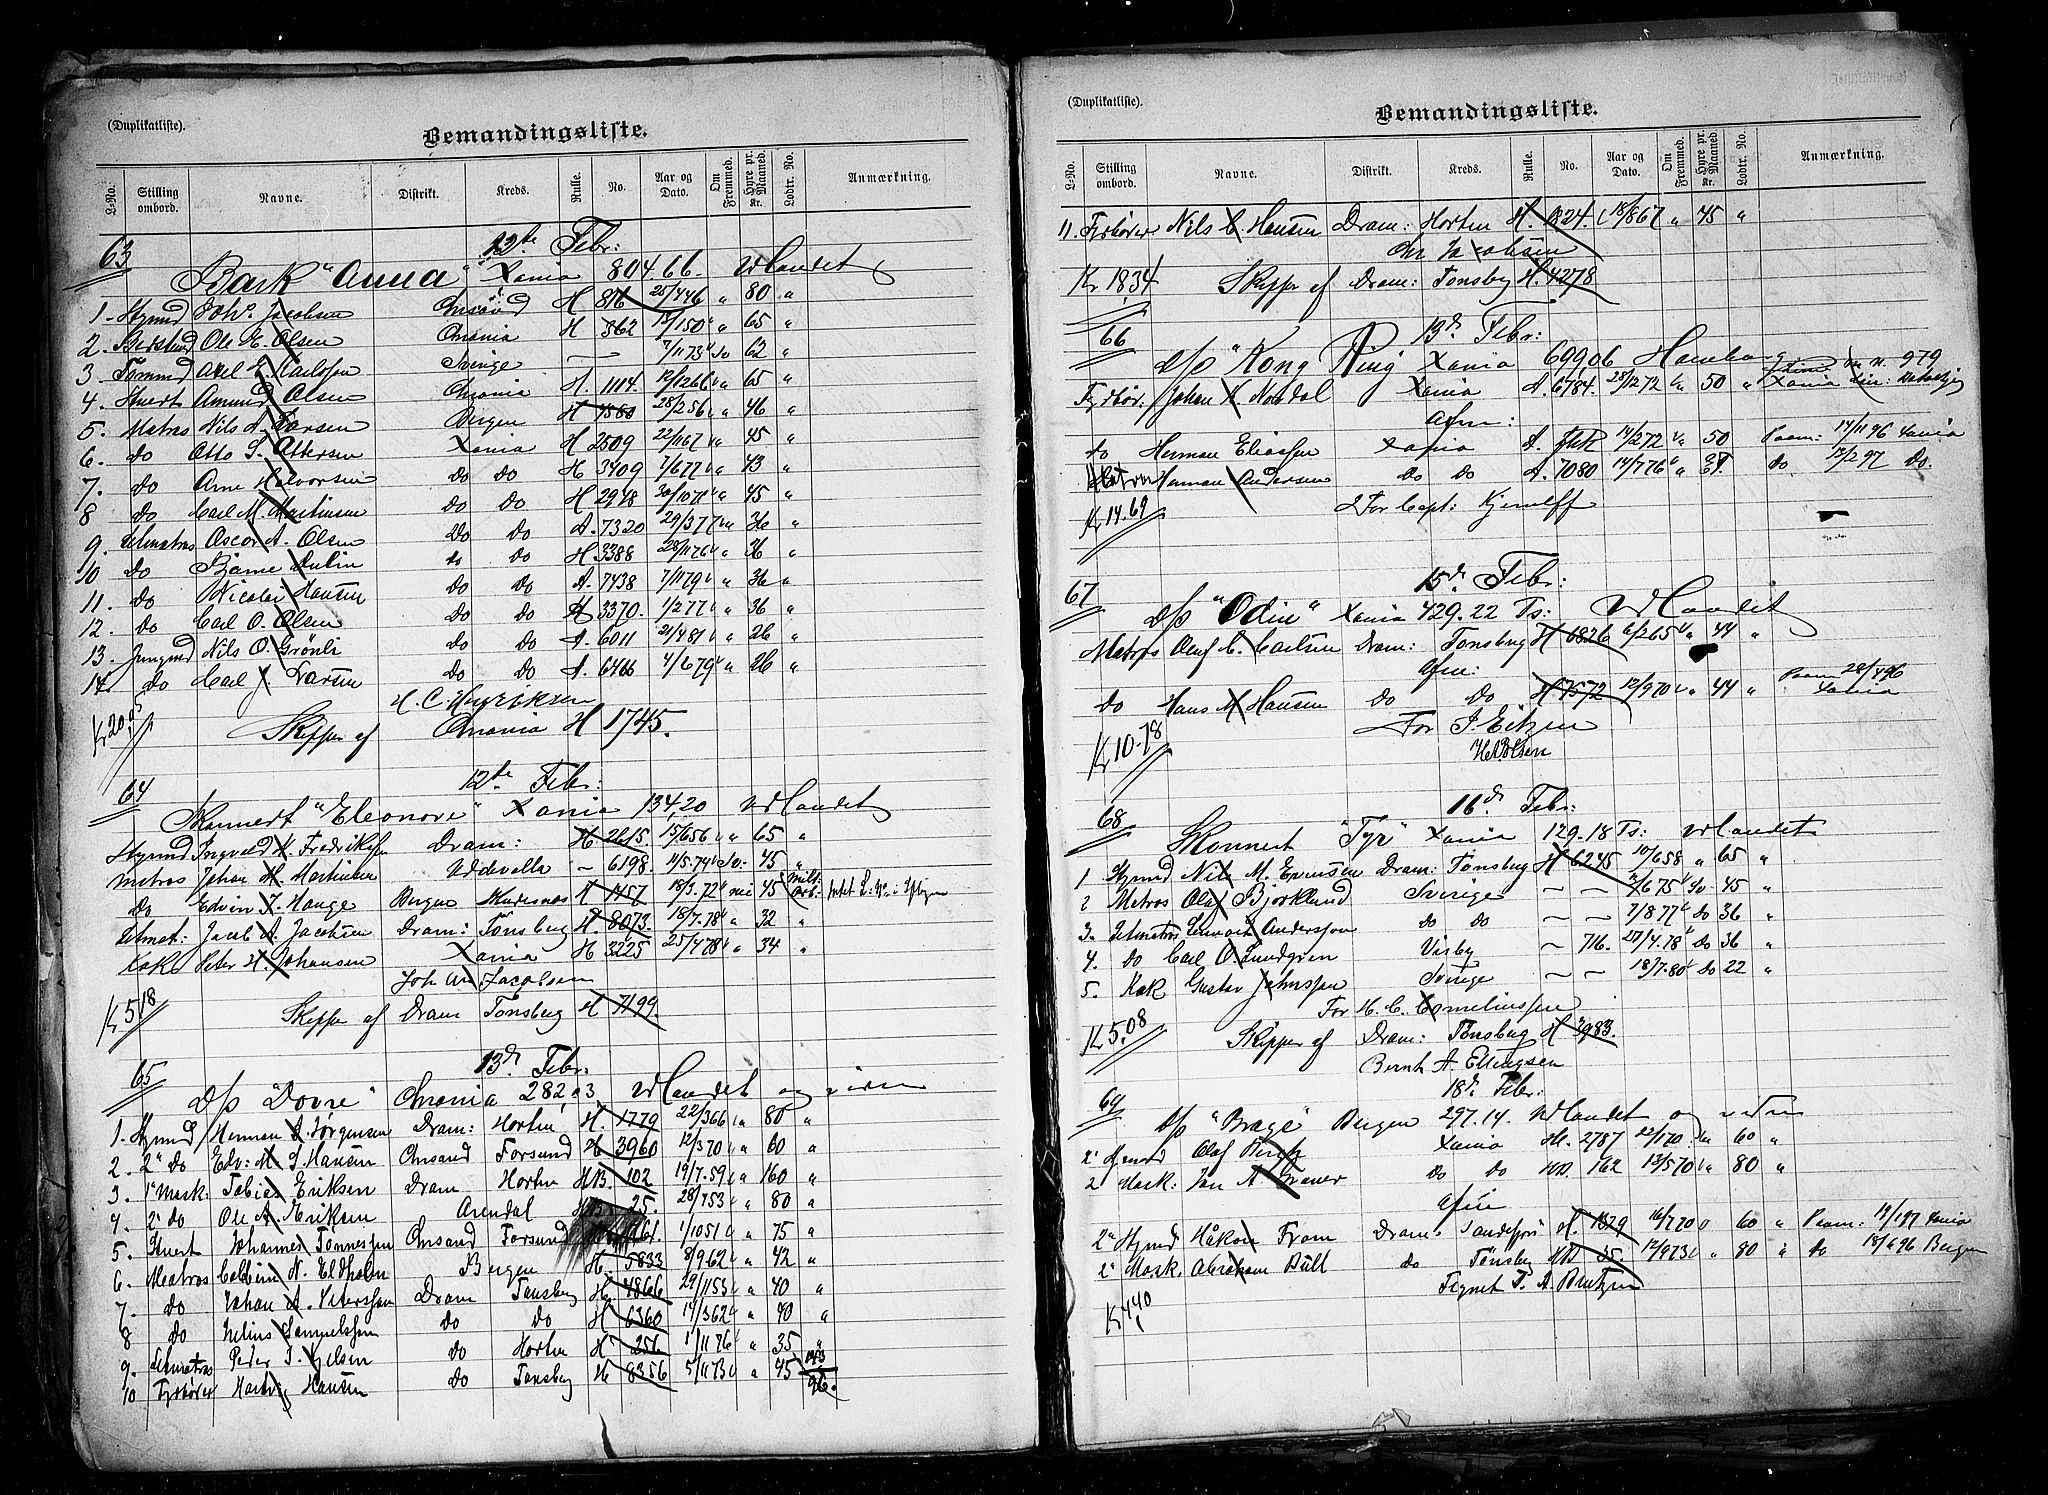 (Duplikatliste).
Bemandingsliste.
L-No. Stilling ombord. Navne. Distrikt. Kreds. Rulle. No. Aar og Dato. Om Fremmed. Hyre pr. Maaned Kr. Lodtr. No. Anmærkning.
63 12te Febr:
Bark "Anna" Xania 804.66. Udlandet
1. Styrmd Joh. Jacobsen H 816 25/4 46 " 80 "
2. Ole E. Olsen Chrania H 362 65 "
3 Tømmd Axel Karlsson Sverige — 62 "
4. Stuert Amund Olsen Chrania H. 1114. 12/12 66 " 65 "
5. Matros Nils A. Larsen Bergen H 1580 28/2 56 " 46 "
6. do Otto S. Ottersen Xania H 2509 22/11 67 " 45 "
7. do Arne Halvorsen do do H 3409 1/6 77 " 43 "
8 do Carl M. Martinsen do do H 2918 " 45 "
9. Letmatros Oscar A. Olsen do do A. 7320 29/3 77 " 36 "
10 do Bjarne do do H 3388 28/11 76 " 36 "
11. do Nicolai Hansen do do A. 7438 7/11 79 " 36 "
12. do Carl O. Olsen do do A 3370. 1/2 77 " 36 "
13. Jungmd Nils O. Grönli do do A. 6011 21/4 81 " 26 "
14. do Carl J. Larsen do do A. 6466 4/6 79 " 26 "
H. C. Henriksen
Kr 20.95 Skipper af Chrania H 1745.
64 12te Febr:
Skonnert "Eleonore" Xania 134,20 Udlandet
Styrmd Ingvald K. Fredriksen Dram: H 2615. 15/6 56 " 65 "
Matros Johan M. Martinsen Uddevalla — 6198. 11/5.74 do. 45 "
do Edvin J. Hauge Bergen Skudesnæs H 1457 18/3.72 nei 45
Letmat: Jacob A. Jacobsen Dram: Tönsberg H. 8073. 18/7.78 " 32 "
Kok Peter H. Johansen Xania H 3225 25/4 78 " 34 "
Joh An Jacobsen
Kr 5.18 Skipper af Dram Tonsberg H 7199.
65 13de Febr.
D/S "Dovre" Chrania 282,03, Udlandet og viden
1. Styrmd Herman A. Jørgensen Dram: Horten H. 1779 22/3 66 " 80 "
2. 2" do Edv: M. S. Hansen Chrsand Farsund H 3960 12/3 70 " 60 "
3. 1" Mask: Tobias Eriksen Dram Horten HB. 102 19/7.59 " 160 "
4. 2" do Ole A. Eriksen Arendal HB 25. 28/7 53 " 80 "
5. Stuert Johannes Tönnessen Chrsand Farsund 1/10 51 " 75 "
6. Matros N. Eldholm Bergen H. 5833 8/9 62 " 42 "
7. do Johan A. Petersson Dram Tonsberg H 4866 29/11 53 " 40 "
8 do Julius Samuelsson do do H 6360 14/3 62 " 40 "
9. Letmatros Peder J. do Horten H 256 1/11 76 " 35 "
10 Fyrbøder Hansen do Tonsberg H 8356 5/11 73 " 45 96.
(Duplikatliste).
Bemandingsliste.
L-No. Stilling ombord. Navne. Distrikt. Kreds. Rulle. No. Aar og Dato. Om Fremmed. Hyre pr. Maaned Kr. Lodtr. No. Anmærkning.
11. Fyrbøder Nils C. Hansen Dram: Horten H. 1324. 18/8 67 " 45 "
Chr Jacobsen
Kr 18,34 Skipper af Dram: Tonsberg H. 4278
66 13de Febr:
D/S "Kong Ring" Xania 699.06 Hamburg
Fyrbör. Johan K. Nordal Xania A. 6784. 28/12 72 " 50 "
Afm:
do Herman Eliassen Xania A. 14/2 72 " 50 Paam: 14/11 96 Xania
Herman Andersen do do A. 7080 14/7 76 " do 12/2 97 do.
Kr 14.69 For Capt:
67 15de Febr:
D/S "Odin" Xania 429.22 Ts: Udlandet
Matros Oluf C. Carlsen Dram: Tonsberg H 6826 6/2 65 " 44 "
Afm:
do Hans M. Hansen do do H 7572 12/9 70 " 44 " Paam 28/4 96 Xania
For J. Eitzen
Kr 10.78
68 16de Febr:
Skonnert "Tyr" Xania 129.18 Ts: Udlandet
1 Styrmd Nils M. Evensen Dram: Tonsberg H 6245 10/6 58 " 65 "
2 Matros Olaf Bjorklund Sverige — — 2/6 75 do 45 "
3. Letmatros Andersson do do — — 7/8 77 do 36 "
4. do Carl O. Lundgren Visby — 716. 27/4.78 do 36 "
5. Kok Gustav Johnsson Sverige — — 18/7.80 do 22 "
For H. C. Corneliussen
Kr 5.08 Skipper af Dram: Tonsberg H 3983.
Bernh A. Ellingsen
69 18de Febr:
D/S "Brage" Bergen 297.14. Udlandet og viden
2" Styrmd Olaf Xania H. 2787 22/1 70 " 60 "
2 Mask: Jan A. do do 162 13/5 70 " 80 "
Afm
2" Styrmd Håkon From Dram. Sandefj: H. 1379 16/7 70 60 " Paam: Xania
2" Mask. Abraham Bull do Tönsberg HB 35. 12/9 73 " 80 " do Bergen
Tegnet T. A. Bentzen
Kr 4.40